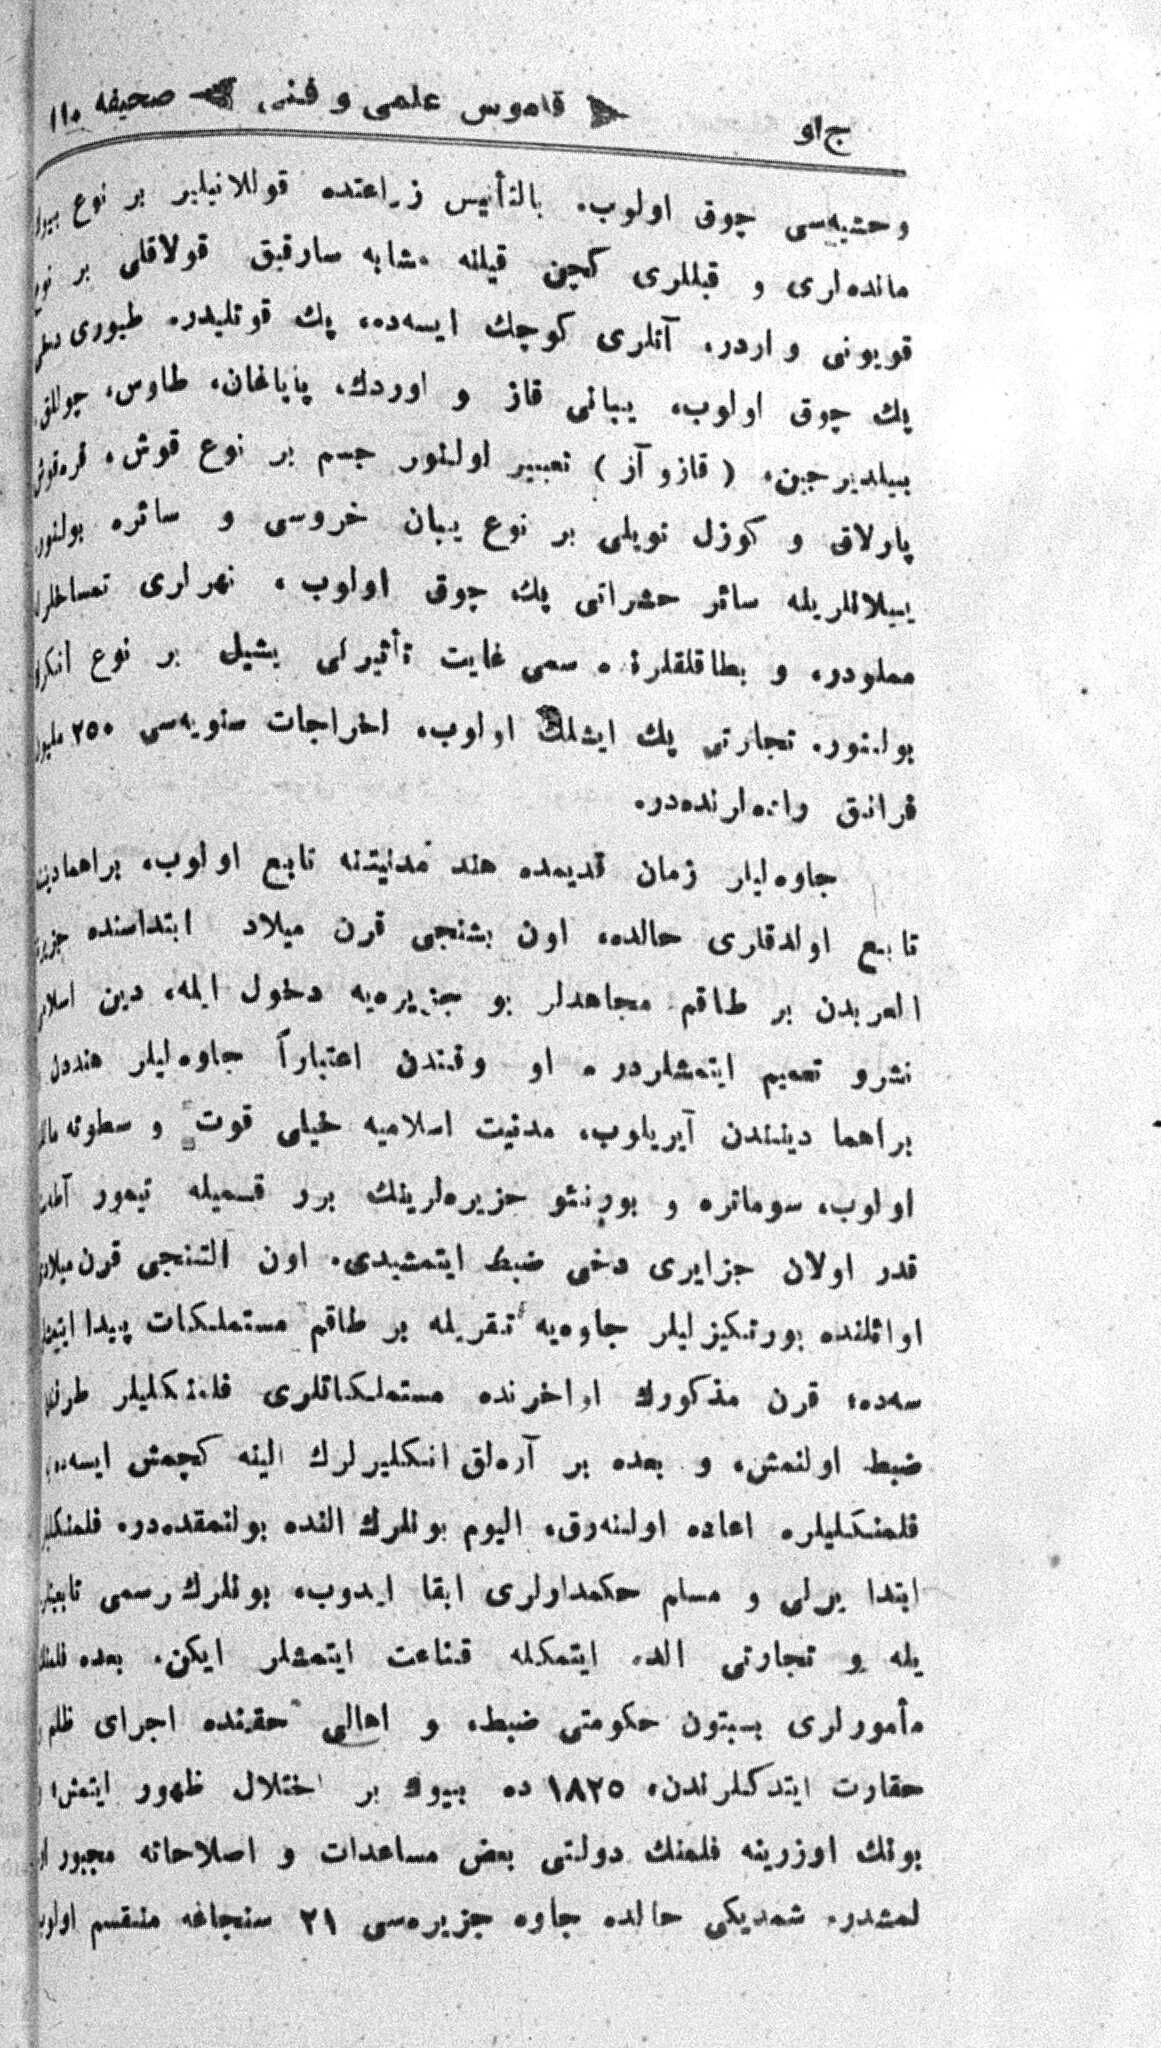 ج او قاموس علمی و فنی صحیفه ۱۱۰
وحشیه‌سی چوق اولوب. بالتأنیس زراعتده قوللانیلیر بر نوع بیوك
مانده‌لری و قیللری كچی قیلنه مشابه صارقیق قولاقلی بر نوع
قویونی واردر. آتلری كوچك ایسه‌ده، پك قوتلیدر. طیوری دخی
پك چوق اولوب، یبانی قاز و اوردك، پاپاغان، طاوس، چوللق،
بیلدیرجین، ( قازوآز ) تعبیر اولنور جسم بر نوع قوش، قره‌قوش
پارلاق و كوزل تویلی بر نوع یبان خروسی و سائره بولنور.
ییلانلریله سائر حشراتی پك چوق اولوب، نهرلری تمساحلرله
مملودر، و بطاقلقلرده سمی غایت تأثیرلی یشیل بر نوع انكرك
بولنور. تجارتی پك ایشلك اولوب، اخراجات سنویه‌سی ۲۵۰ ملیون
فرانق راده‌لرنده‌در.
جاوه‌لیلر زمان قدیمده هند مدنیتنه تابع اولوب، براهما دیننه
تابع اولدقلری حالده، اون بشنجی قرن میلاد ابتداسنده جزیرة
العربدن بر طاقم مجاهدلر بو جزیره‌یه دخول ایله، دین اسلامی
نشر و تعمیم ایتمشلردر. او وقتدن اعتباراً جاوه‌لیلر هنددن
براهما دینندن آیریلوب، مدنیت اسلامیه خیلی قوت و سطوته مالك
اولوب، سوماتره و بورنئو جزیره‌لرینك برر قسمیله تیمور آطه‌سنه
قدر اولان جزایری دخی ضبط ایتمشیدی. اون التنجی قرن میلادی
اوائلنده پورتكیزلیلر جاوه‌یه تقربله بر طاقم مستملكات پیدا ایتمشلر
سه‌ده؛ قرن مذكورك اواخرنده مستملكاتلری فلمنكلیلر طرفندن
ضبط اولنمش، و بعده بر آره‌لق انكلیزلرك الینه كچمش ایسه‌ده،
فلمنكلیلره اعاده اولنه‌رق، الیوم بونلرك النده بولنمقده‌در. فلمنكلیلر
ابتدا یرلی و مسلم حكمدارلری ابقا ایدوب، بونلرك رسمی تابعیتی
یله و تجارتی الده ایتمكله قناعت ایتمشلر ایكن، بعده فلمنك
مأمورلری بسبتون حكومتی ضبط، و اهالی حقنده اجرای ظلم و
حقارت ایتدكلرندن، ۱۸۲۵ ده بیوك بر اختلال ظهور ایتمش، و
بونك اوزرینه فلمنك دولتی بعض مساعدات و اصلاحاته مجبور او
لمشدر. شمدیكی حالده جاوه جزیره‌سی ۲۱ سنجاغه منقسم اولوب